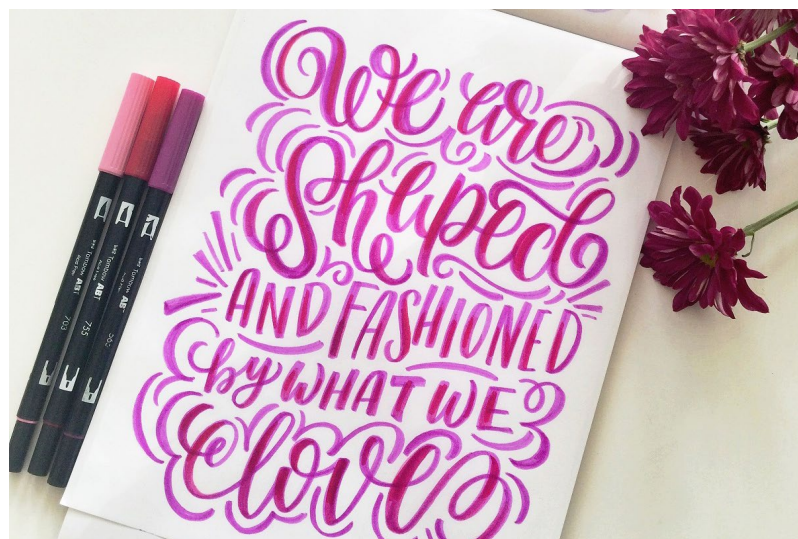 We are
Shaped
AND FASHIONED
by WHAT WE
love
Tombow ABT
703
Tombow ABT
755
Tombow ABT